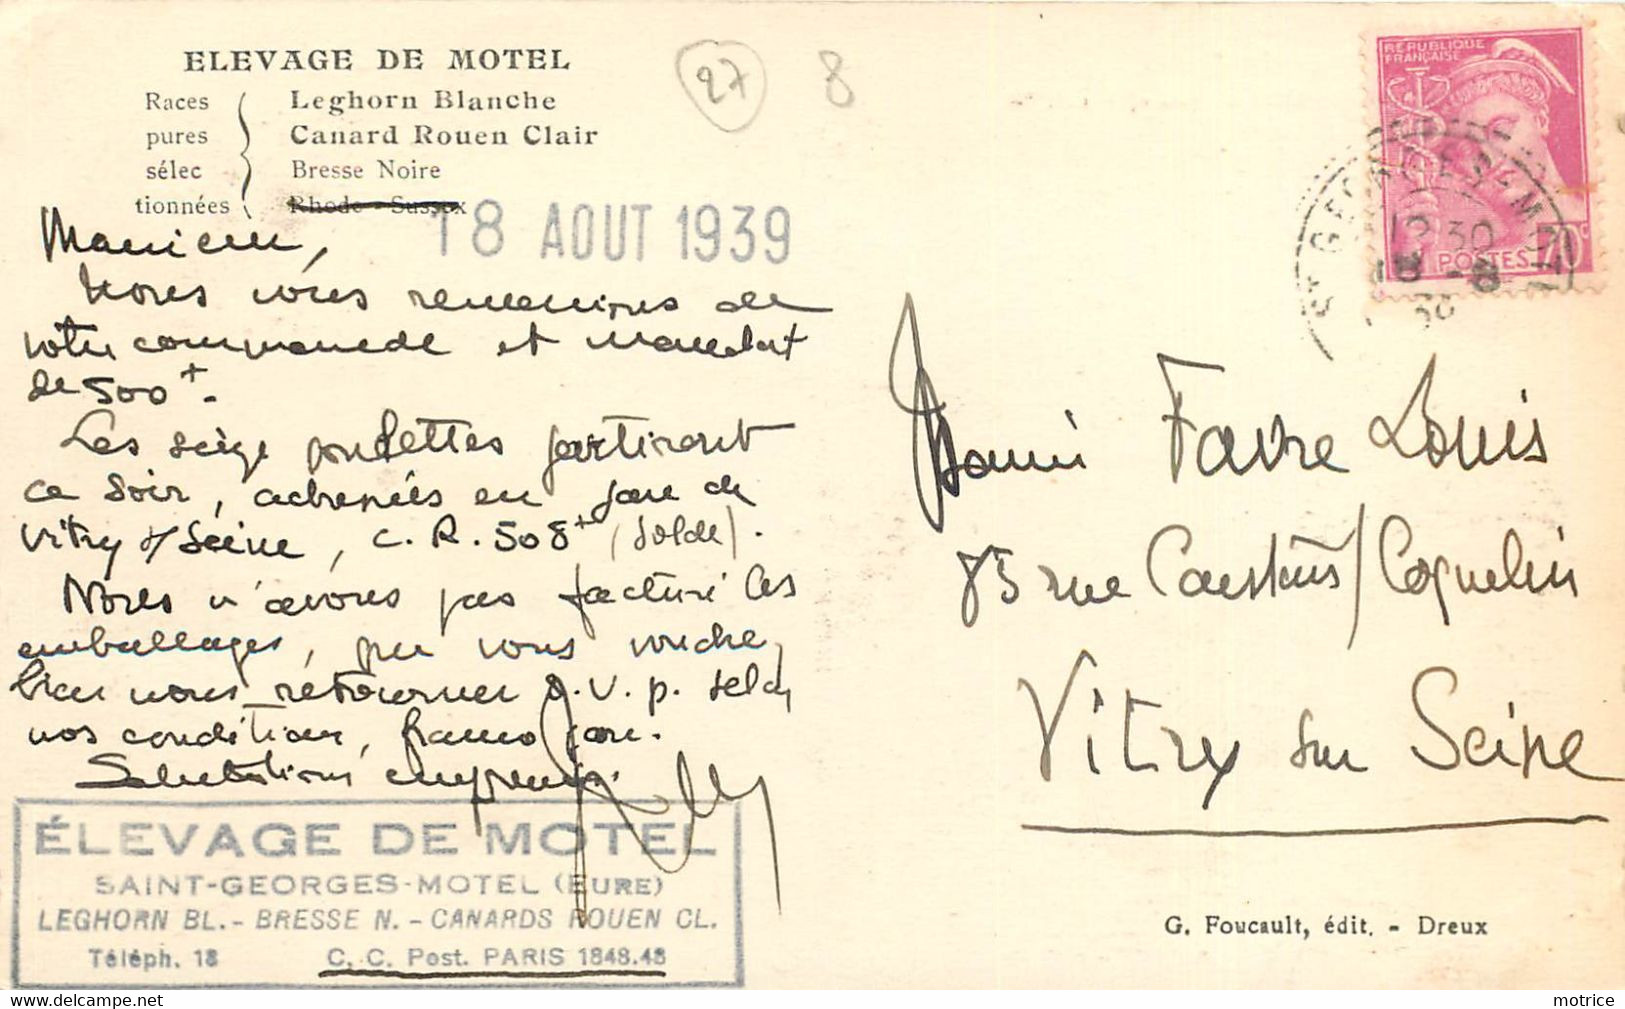 ELEVAGE DE MOTEL
Races pures sélec tionnées
Leghorn Blanche
Canard Rouen Clair
Bresse Noire
Rhode - Sussex
27
8
18 AOUT 1939
Monsieur,
Nous vous remercions de
votre commande et mandat
de 500+.
Les seize poulettes partiront
ce soir, adressées en gare de
Vitry s/ Seine, C. R. 508+ (solde).
Nous n'avons pas facturé les
emballages, que vous voudrez
bien nous retourner G.V.p. selon
nos conditions, franco gare.
Salutations empressées
RÉPUBLIQUE
FRANÇAISE
70c
POSTES
ST GEORGES-MOTEL
30
18 - 8
Favre Louis
85 rue Constant / Coquelin
Vitry sur Seine
ÉLEVAGE DE MOTEL
SAINT-GEORGES-MOTEL (EURE)
LEGHORN BL. - BRESSE N. - CANARDS ROUEN CL.
Téléph. 18 C. C. Post. PARIS 1848.48
G. Foucault, édit. - Dreux
www.delcampe.net
motrice